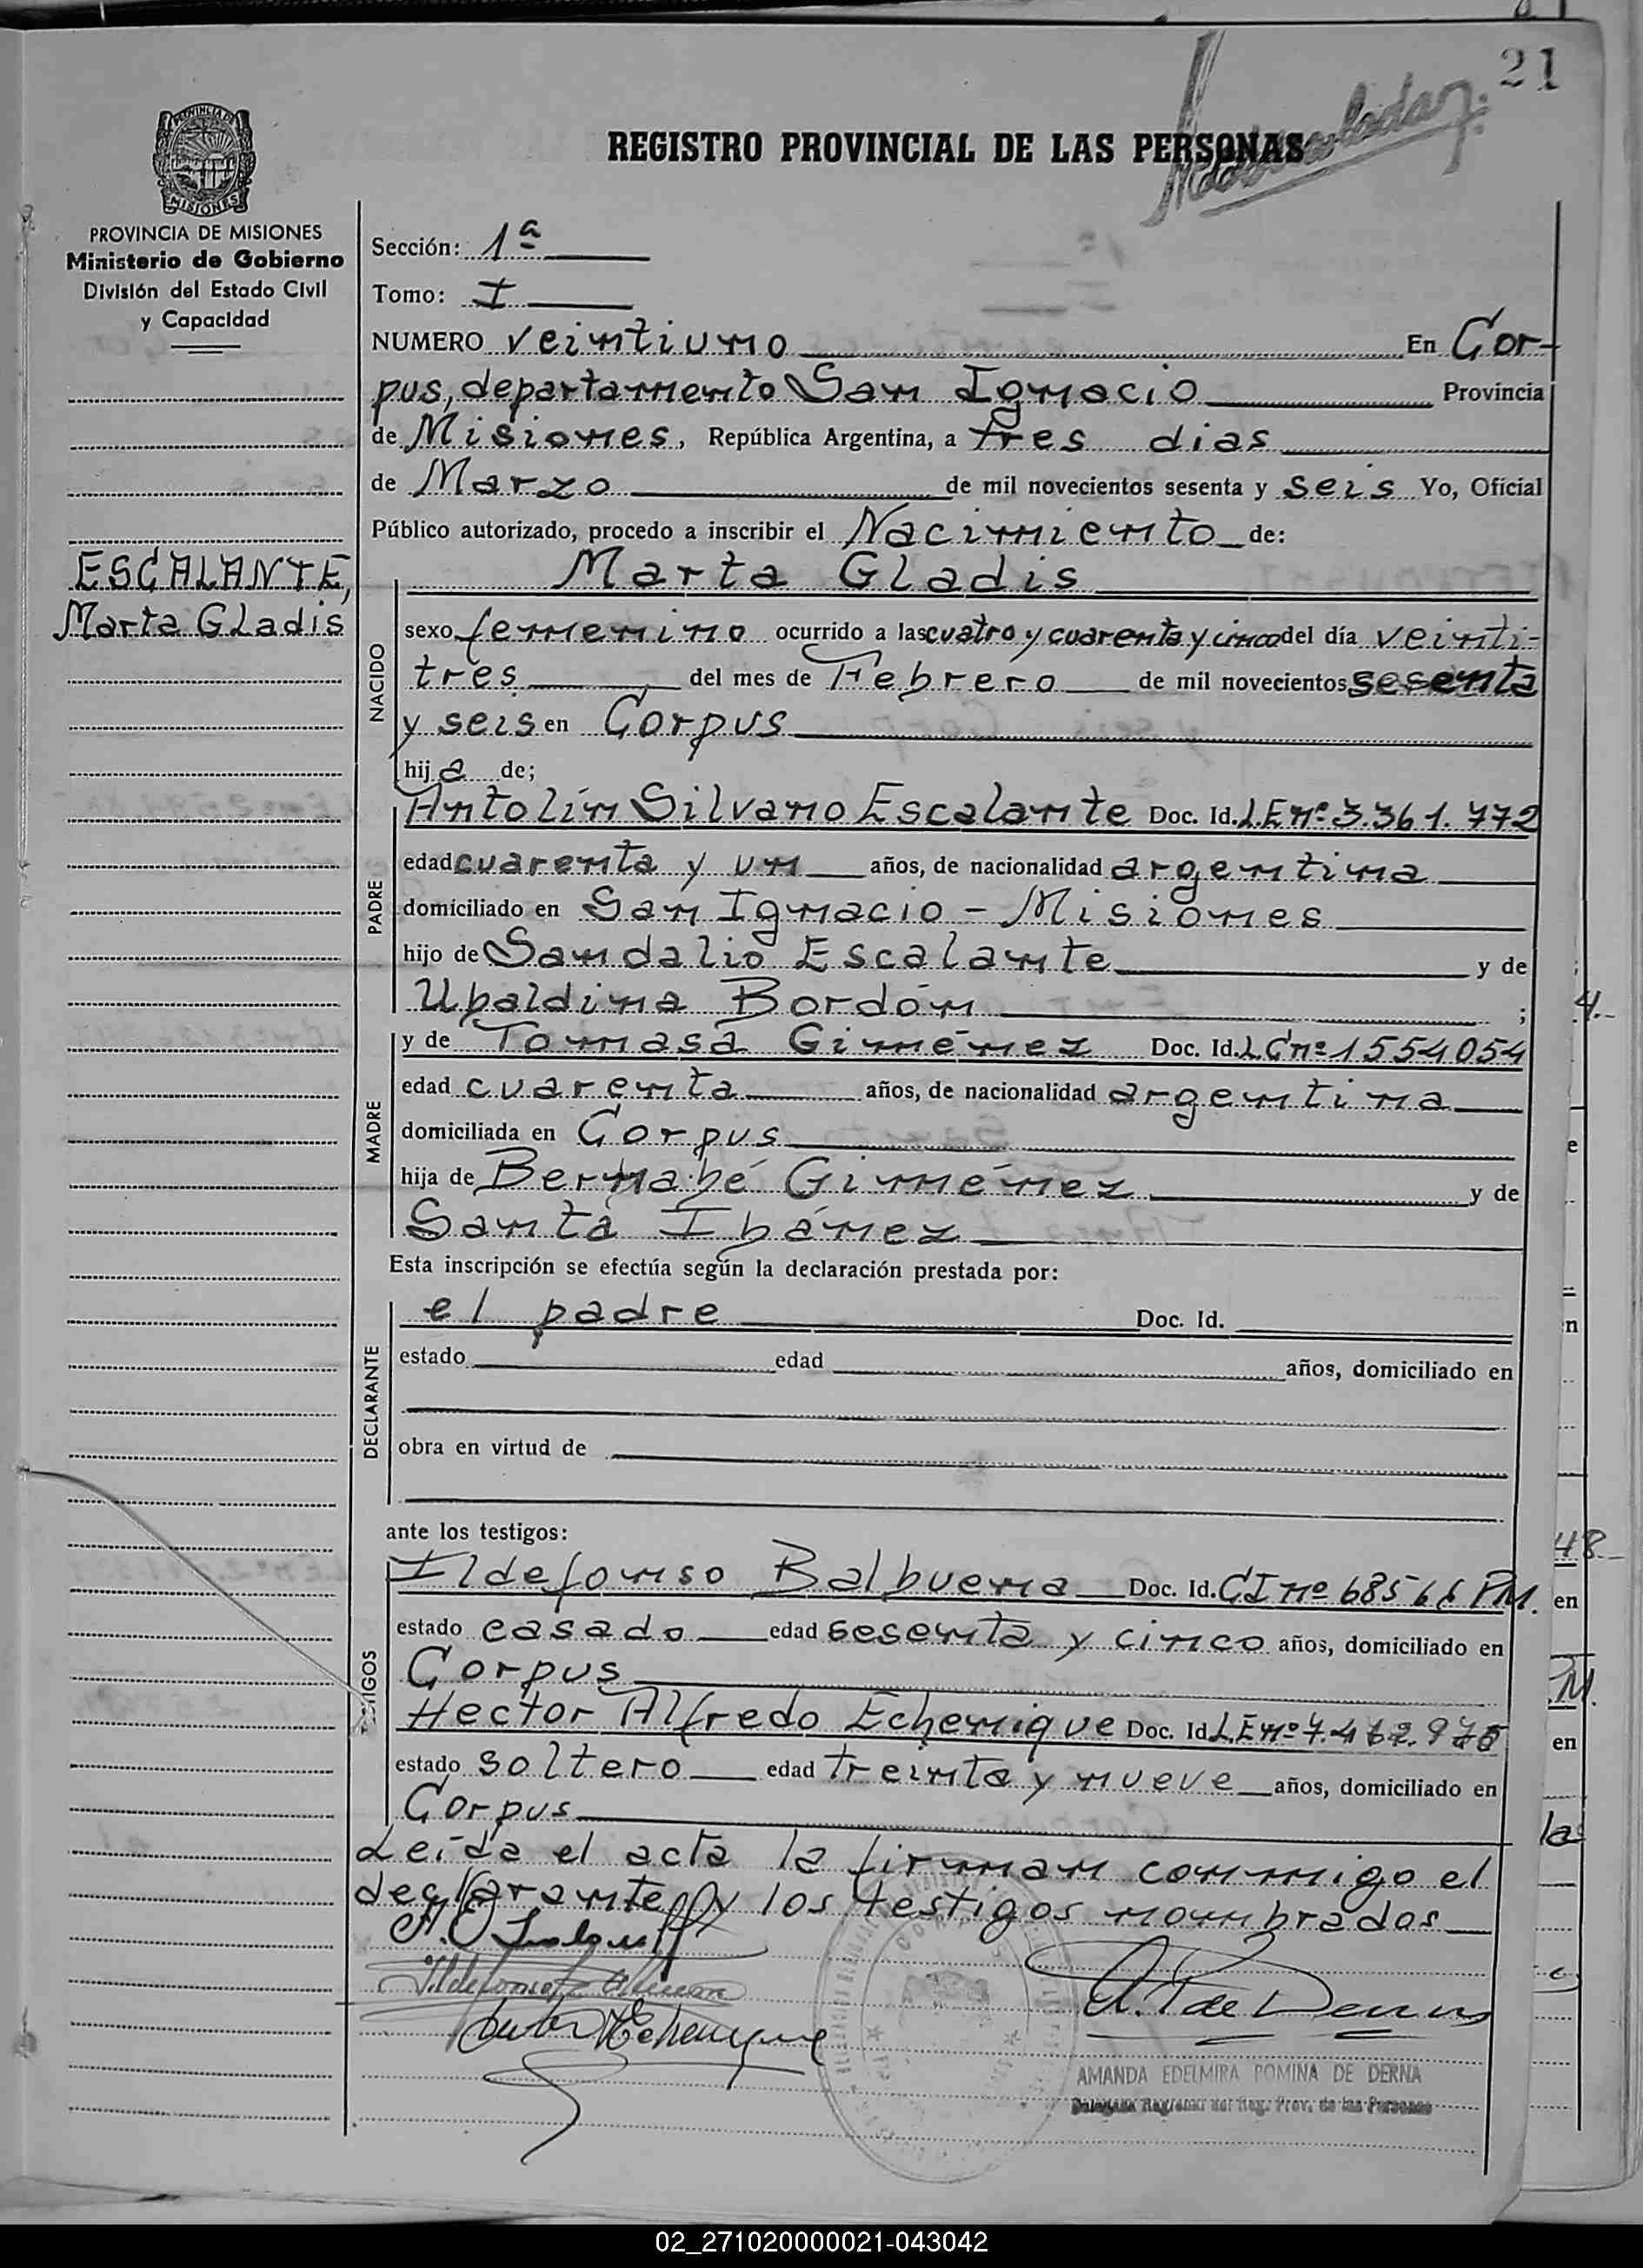 21
REGISTRO PROVINCIAL DE LAS PERSONAS
PROVINCIA DE MISIONES
MISIONES
PROVINCIA DE MISIONES
Ministerio de Gobierno
División del Estado Civil
y Capacidad
ESCALANTE,
Marta Gladis
Sección: 1ª
Tomo: I
NUMERO veintiuno En Cor-
pus, departamento San Ignacio Provincia
de Misiones, República Argentina, a tres dias
de Marzo de mil novecientos sesenta y seis Yo, Oficial
Público autorizado, procedo a inscribir el Nacimiento de:
Marta Gladis
NACIDO
sexo femenino ocurrido a las cuatro y cuarenta y cinco del día veinti-
tres del mes de Febrero de mil novecientos sesenta
y seis en Corpus
hija de;
PADRE
Antolín Silvano Escalante Doc. Id. L.E nº 3.361.772
edad cuarenta y un años, de nacionalidad argentina
domiciliado en San Ignacio - Misiones
hijo de Sandalio Escalante y de
Ubaldina Bordón ;
MADRE
y de Tomasa Giménez Doc. Id. LC nº 1554054
edad cuarenta años, de nacionalidad argentina
domiciliada en Corpus
hija de Bernabé Giménez y de
Santa Ibánez
Esta inscripción se efectúa según la declaración prestada por:
DECLARANTE
el padre Doc. Id.
estado edad años, domiciliado en
obra en virtud de
ante los testigos:
TESTIGOS
Ildefonso Balbuena Doc. Id. CI nº 68566 PM.
estado casado edad sesenta y cinco años, domiciliado en
Corpus
Hector Alfredo Echenique Doc. Id L.E nº
estado soltero edad treinta y nueve años, domiciliado en
Corpus
Leída el acta la firman conmigo el
declarante y los testigos nombrados
A. P de Derna
AMANDA EDELMIRA ROMINA DE DERNA
Delegada Regional del Reg. Prov. de las Personas
4.-
e
n
48
en
PM.
en
la
02_271020000021-043042